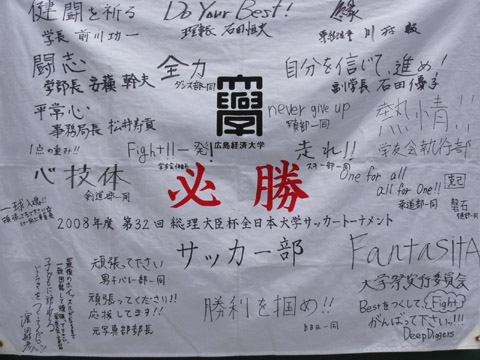 健闘を祈る
学長 前川功一
Do Your Best!
理事長 石田恒夫
縁
闘志
学部長 安藤 幹夫
全力
ダンス部一同
大學
広島経済大学
自分を信じて、進め!
副学長 石田優子
平常心
事務局長 松井寿貢
never give up
熱情!!
学友会執行部
1点の重み!!
Fight!! 一発!
走れ!!
スキー部一同
心技体
剣道部一同
必勝
One for all
all for One!!
柔道部一同
克己
磐石
一球入魂!!
2008年度 第32回 総理大臣杯全日本大学サッカートーナメント
サッカー部
FantasIIA
大学祭実行委員会
頑張って下さい
男子バレー部一同
頑張ってください!!
応援してます!!
元写真部部長
勝利を掴め!!
BBR一同
Bestをつくして、Fight
がんばって下さいっ!!!
DeepDiggers